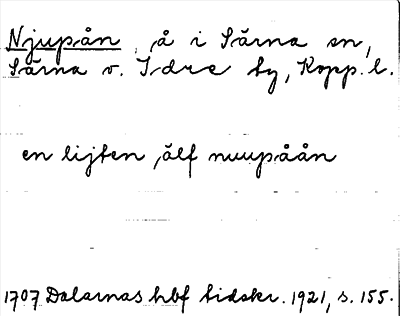 Njupån, å i Särna sn,
Särna o. Idre tg, Kopp. l.
en lijten älf nuupåån
1707 Dalarnas hbf tidskr. 1921, s. 155.